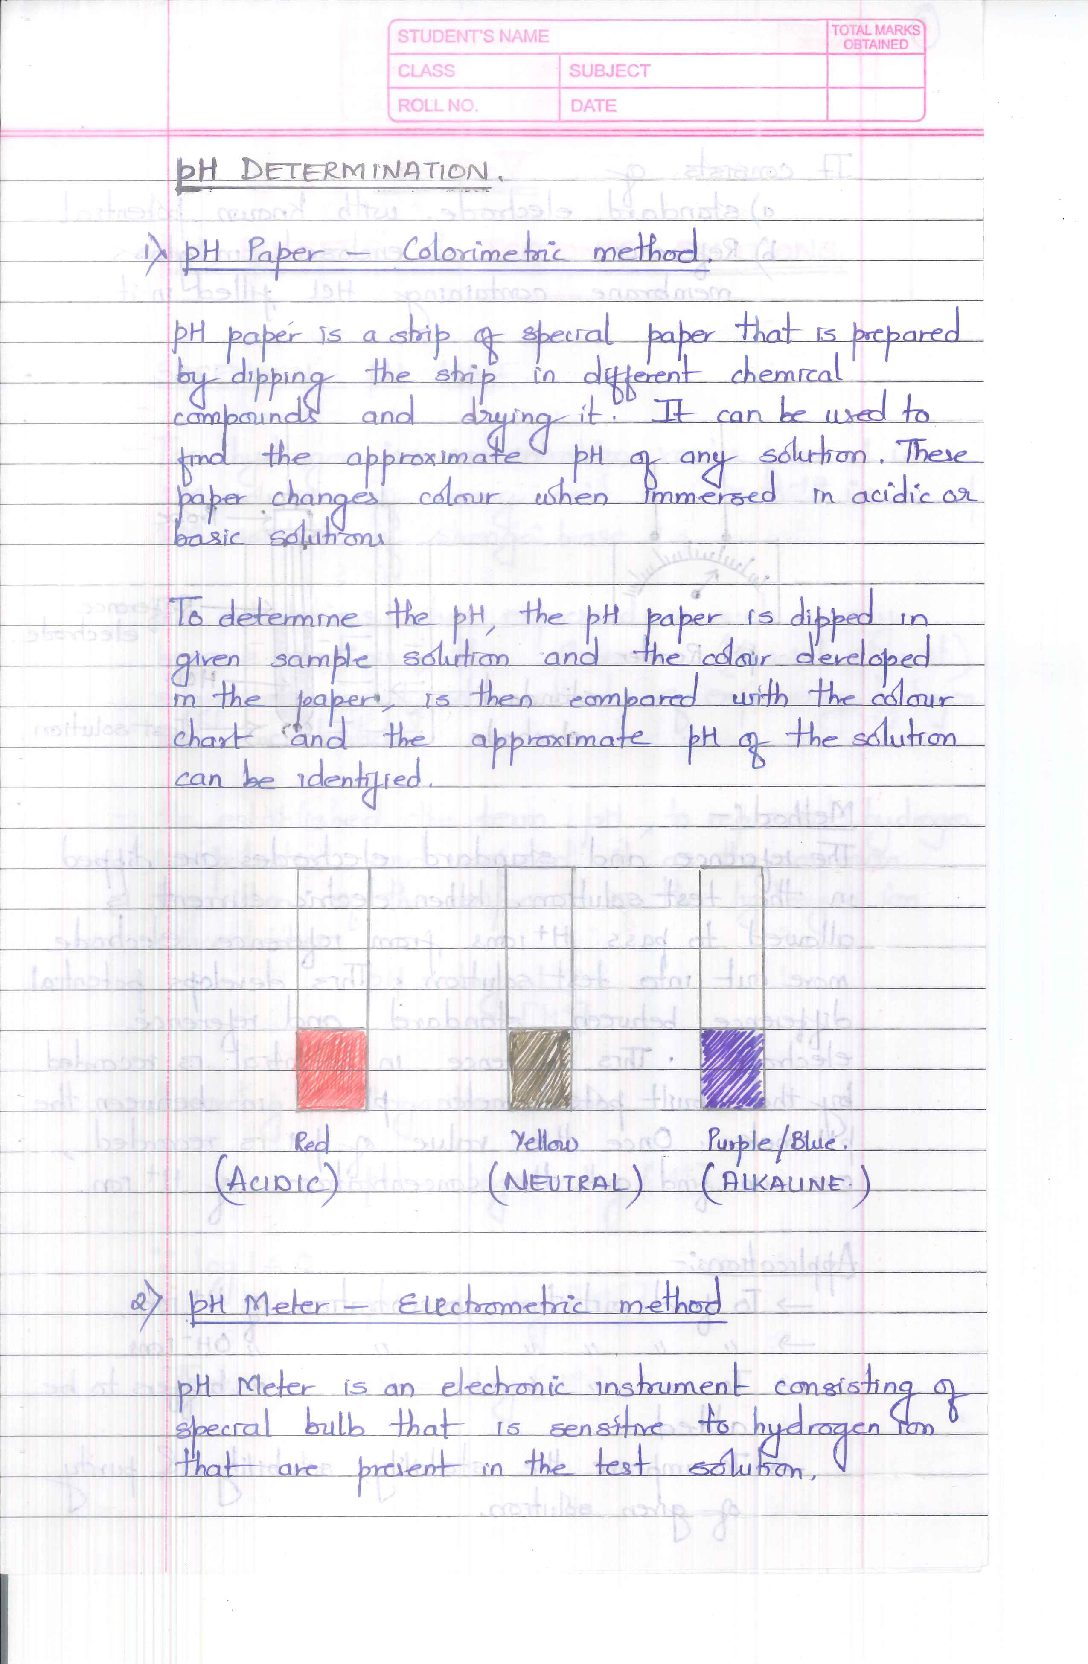 STUDENT'S NAME
TOTAL MARKS OBTAINED
CLASS
SUBJECT
ROLL NO.
DATE
pH DETERMINATION.
1) pH Paper – Colorimetric method.
pH paper is a strip of special paper that is prepared
by dipping the strip in different chemical
compounds and drying it. It can be used to
find the approximate pH of any solution. These
paper changes colour when immersed in acidic or
basic solutions
To determine the pH, the pH paper is dipped in
given sample solution and the colour developed
in the paper, is then compared with the colour
chart and the approximate pH of the solution
can be identified.
Red Yellow Purple/Blue.
(ACIDIC) (NEUTRAL) (ALKALINE.)
2) pH Meter – Electrometric method
pH Meter is an electronic instrument consisting of
special bulb that is sensitive to hydrogen ion
that are present in the test solution.